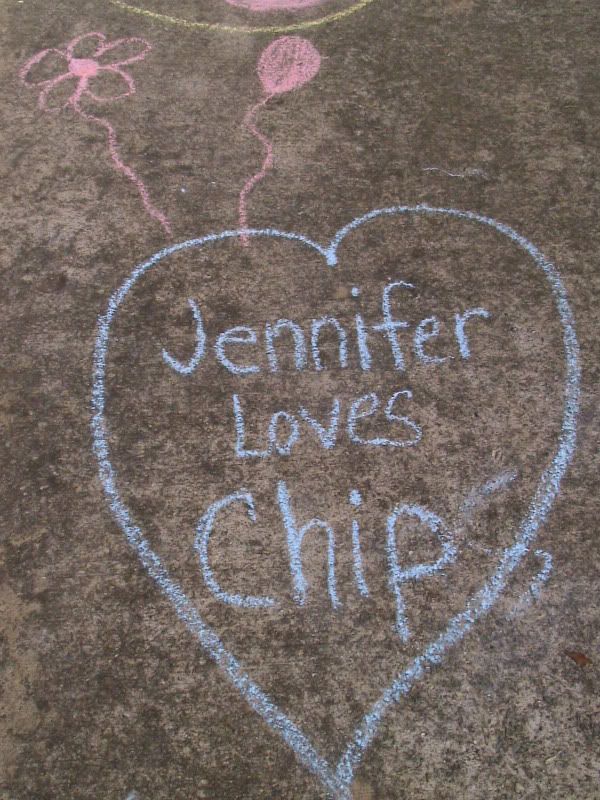 Jennifer
Loves
Chip